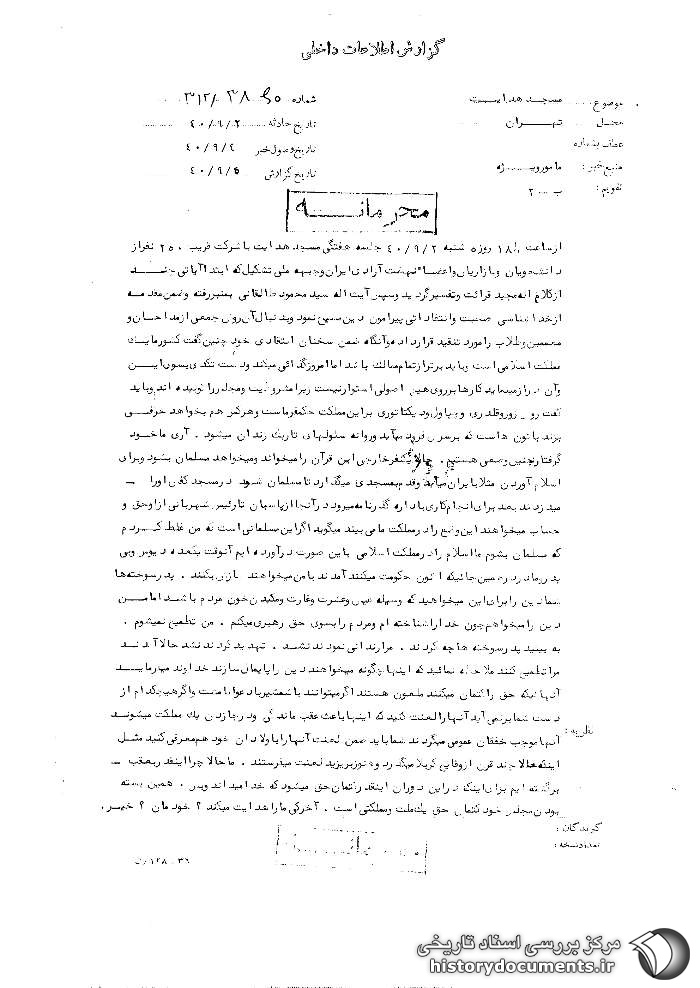 گزارش اطلاعات داخلی
موضوع: مسجد هدایت
محل: تهران
عطف بشماره
منبع خبر: مامور ویژه
تقویم: ب - ۲
شماره
تاریخ حادثه ۴۰/۹/۲
تاریخ وصول خبر ۴۰/۹/۴
تاریخ گزارش ۴۰/۹/۵
محرمانه
از ساعت ۱۸ روز ۵ شنبه ۴۰/۹/۲ جلسه هفتگی مسجد هدایت با شرکت قریب ۲۵۰ نفر از
دانشجویان و بازاریان و اعضاء نهضت آزادی ایران و جبهه ملی تشکیل که ابتدا آیاتی چند
از کلام اله مجید قرائت و تفسیر گردید و سپس آیت اله سید محمود طالقانی بمنبر رفته و ضمن مقدمه
از خداشناسی صحبت و انتقاداتی پیرامون دین مسیح نمود و بدنبال آن روش جمعی از مداحان و
معممین و طلاب را مورد تنقید قرار داد و آنگاه ضمن سخنان انتقادی خود چنین گفت کشور ما یک
مملکت اسلامی است و باید برتر از تمام ممالک باشد اما امروز گدائی میکند و دست تکدی بسوی این
و آن دراز مینماید کارها بر روی هیچ اصولی استوار نیست زیرا مشروطیت و مجلس را بوئیده اند و باید
گفت روز زور و قلدری و چپاول و دیکتاتوری بر این مملکت حکمفرماست و هر کس هم بخواهد حرفی
بزند باتون هاست که بر سرش فرود میآید و روانه سلولهای تاریک زندان میشود . آری ما خود
گرفتار چنین وضعی هستیم . حالا یکنفر خارجی این قرآن را میخواند و میخواهد مسلمان بشود و برای
اسلام آوردن مثلا بایران میآید و قدم بمسجدی میگذارد تا مسلمان شود در مسجد کفش او را
میدزدند بعد برای انجام کاری باداره گذرنامه میرود در آنجا از پاسبان تا رئیس شهربانی از او حق و
حساب میخواهند این وضع را در مملکت ما می بیند میگوید اگر این مسلمانی است که من غلط کردم
که مسلمان بشوم ما اسلام را در مملکت اسلامی باین صورت درآورده ایم آنوقت یکعده دیوس و بی
پدر و مادر در همین جائیکه اکنون حکومت میکنند آمدند با من میخواهند بازی بکنند . پدرسوخته‌ها
شما دین را برای این میخواهید که وسیله عیش و عشرت و غارت و مکیدن خون مردم باشد اما من
دین را میخواهم چون خدا را شناخته ام و مردم را بسوی حق رهبری میکنم . من تطمیع نمیشوم .
به ببینید پدرسوخته ها چه کردند . مرا زندانی نمودند نشد . تهدید کردند نشد حالا آمدند
مرا تطمیع کنند ملاحظه نمائید که اینها چگونه میخواهند دین را پایمال سازند خداوند میفرماید
آنهائیکه حق را کتمان میکنند ملعون هستند اگر میتوانند با شمشیر با دعوا با مشت و اگر هیچکدام از
دست شما برنمی آید آنها را لعنت کنید که اینها باعث عقب ماندگی و درجا زدن یک مملکت میشوند
آنها موجب خفقان عمومی میگردند شما باید ضمن لعنت آنها را باولادان خود هم معرفی کنید مثل
اینکه حالا چند قرن از وقایع کربلا میگذرد و هنوز بر یزید لعنت میفرستند . ما حالا چرا اینقدر بعقب
برگشته ایم برای اینکه در این دوران اینقدر کتمان حق میشود که خدا میداند و بس . همین بسته
بودن مجلس خود کتمان حق یک ملت و مملکتی است . آخر کی ما را هدایت میکند ؟ خودمان ؟ خیر .
نظریه :
گیرندگان :
تعداد نسخه :
محرمانه
مرکز بررسی اسناد تاریخی
historydocuments.ir